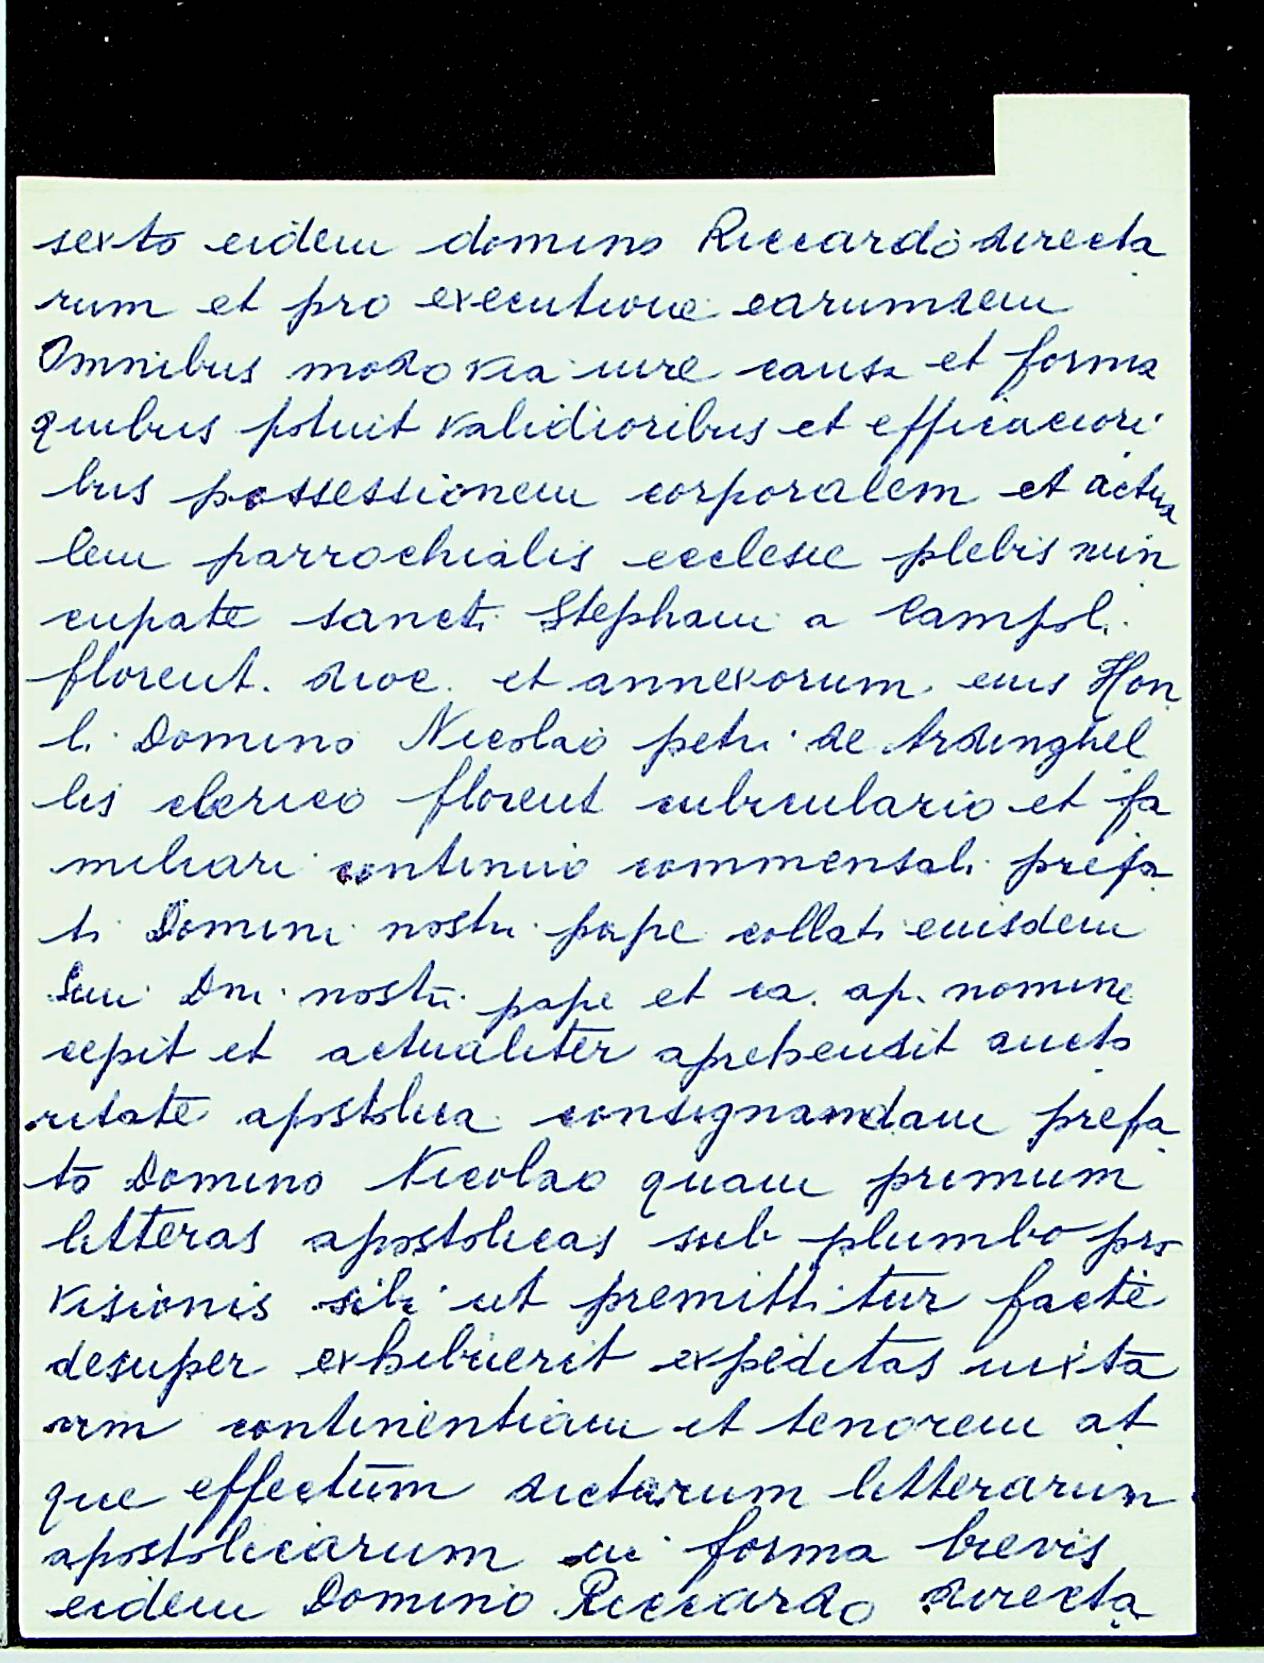 sexto eidem domino Riccardo directa
rum et pro executione earumdem
Omnibus modo via iure causa et forma
quibus potuit validioribus et efficaciori
bus possessionem corporalem et actua
lem parrochialis ecclesie plebis nun
cupate sancti Stephani a Campoli
florent. dioc. et annexorum eius Hon
li Domino Nicolao petri de Ardinghel
lis clerico florent cubiculario et fa
miliari continuo commensali prefa
ti Domini nostri pape collati eiusdem
Smi Dni nostri pape et ca. ap. nomine
cepit et actualiter aprehendit aucto
ritate apostolica consignandam prefa
to Domino Nicolao quam primum
litteras apostolicas sub plumbo pro
visionis sibi ut premittitur facte
desuper exhibuerit expeditas iuxta
rum continentiam et tenorem at
que effectum dictarum litterarum
apostolicarum in forma brevis
eidem Domino Riccardo directa